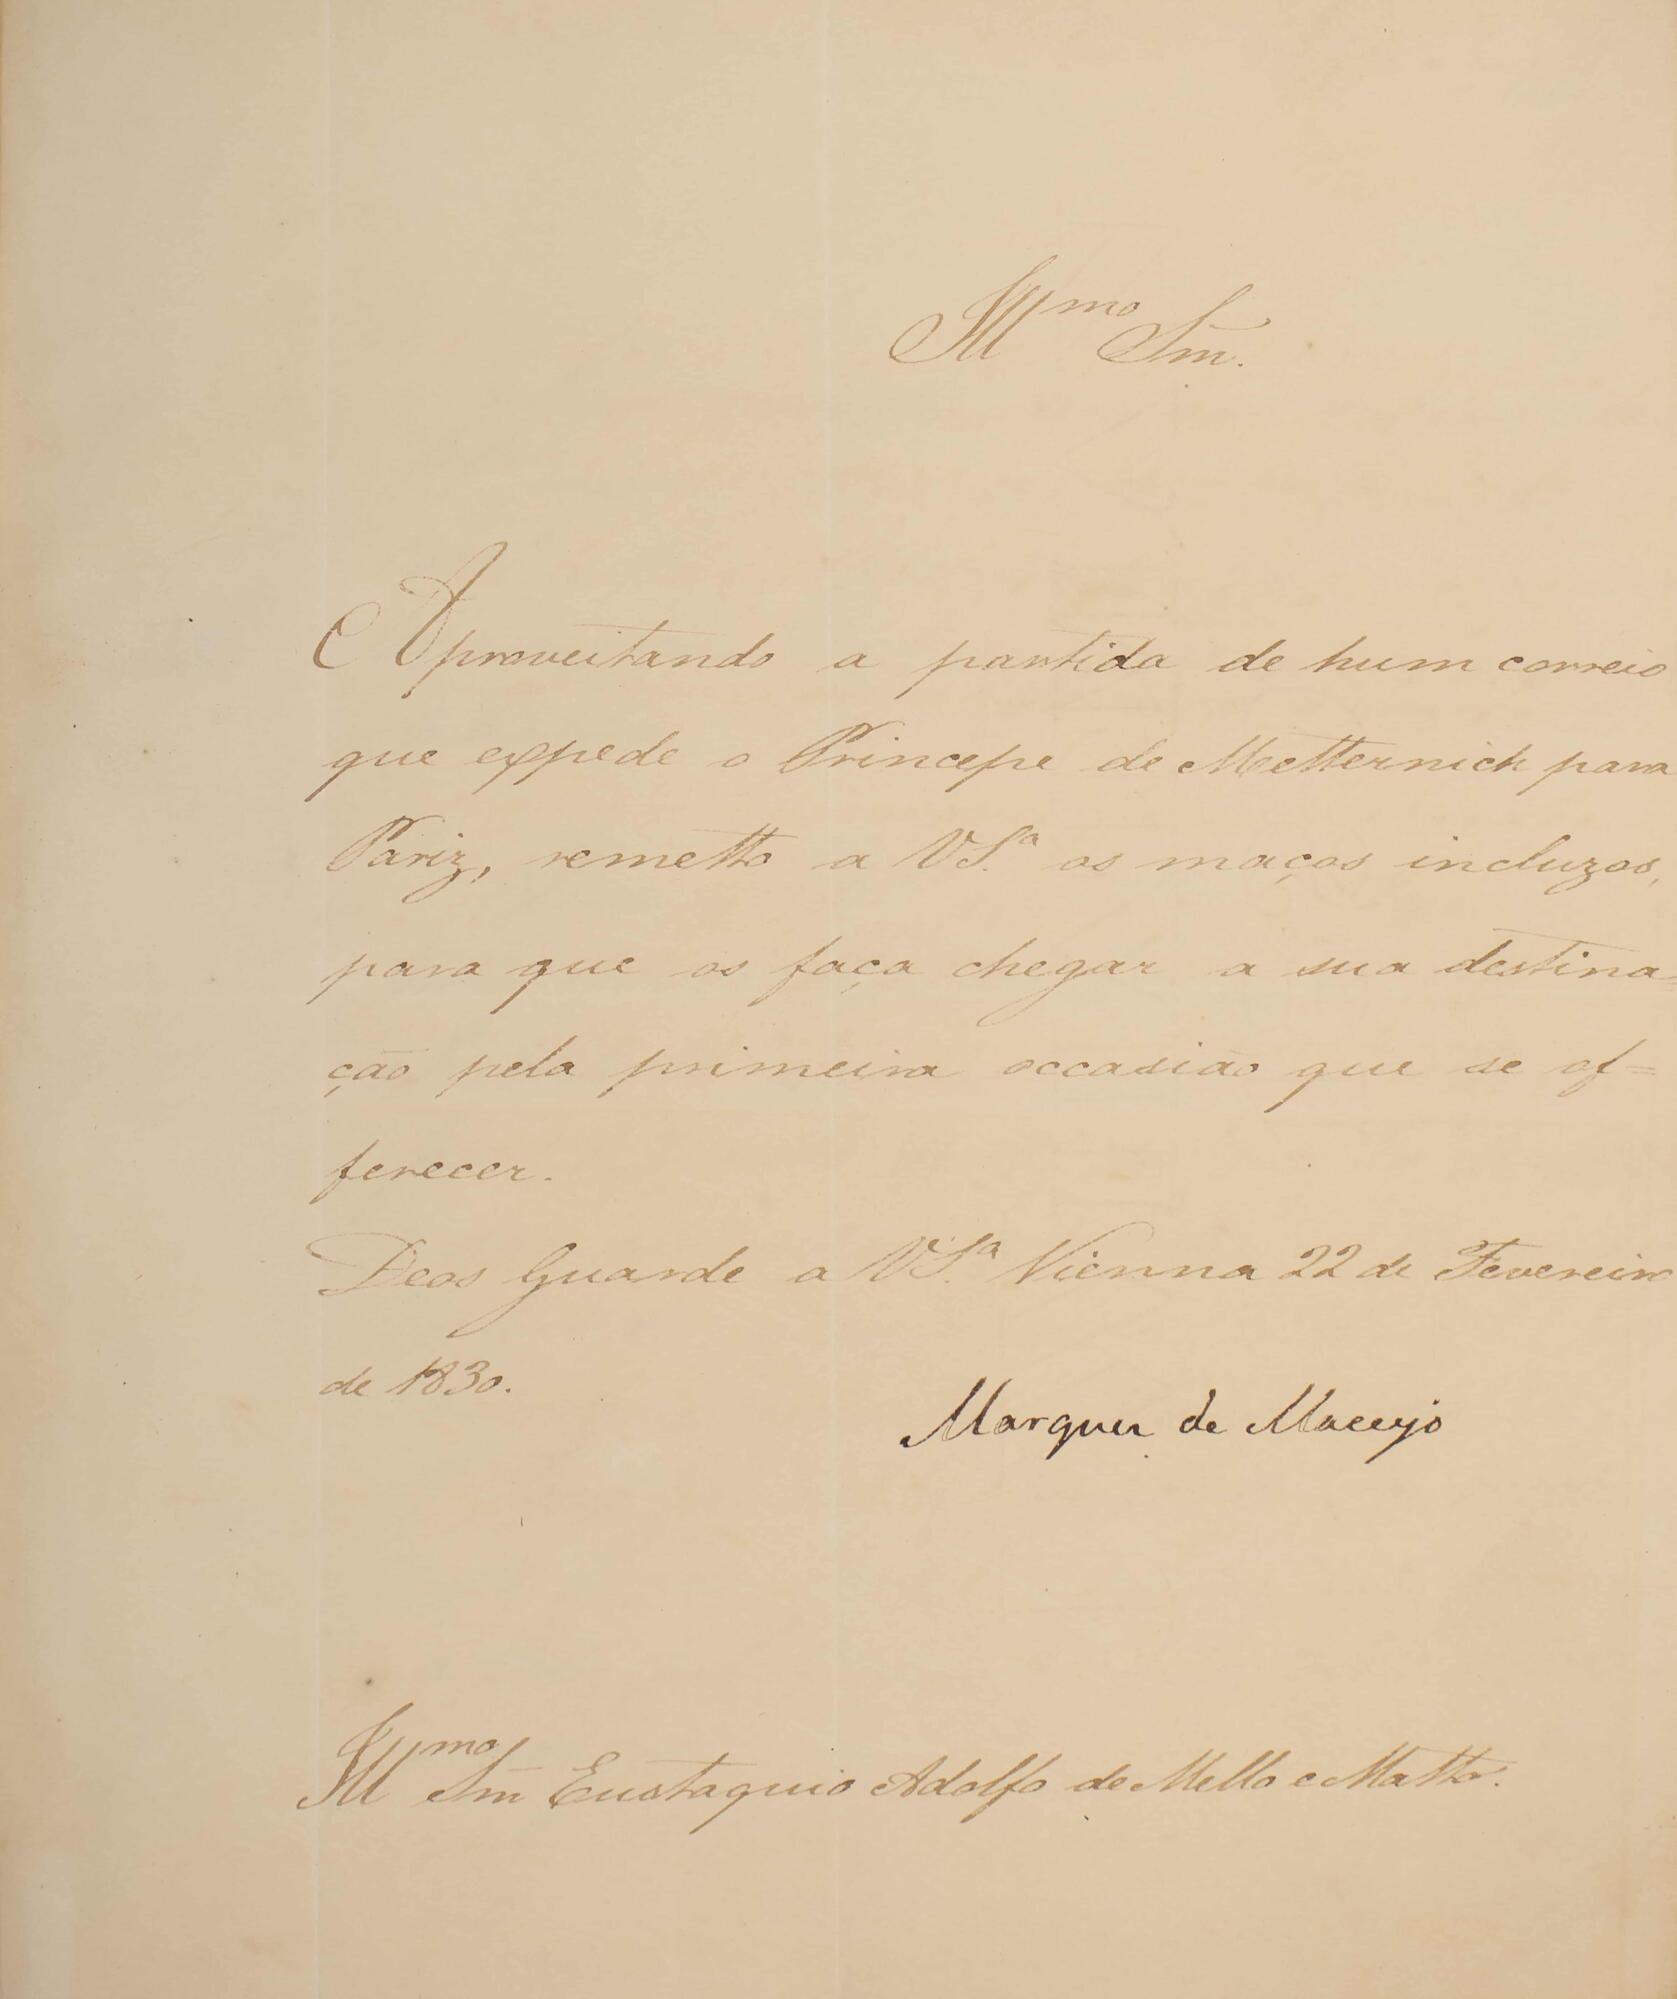 Illmo Snr.
Aproveitando a partida de hum correio
que expede o Princepe de Metternich para
Pariz, remetto a VS.ª os maços incluzos,
para que os faça chegar a sua destina=
ção pela primeira occasião que se of=
ferecer.
Deos Guarde a VS.ª Vienna 22 de Fevereiro
de 1830.
Marquez de Maceyo
Illmo Snr Eustaquio Adolfo de Mello e Matto.